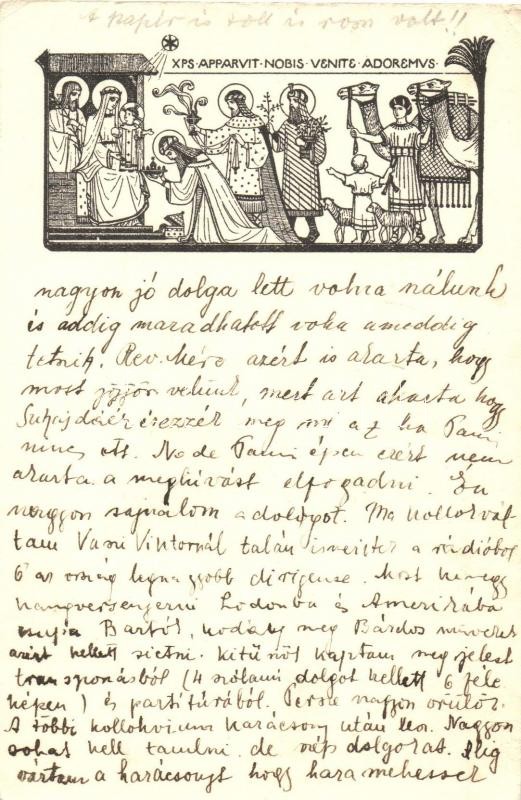 A papír is toll is rossz volt!!
XPS · APPARVIT · NOBIS · VENITE · ADOREMVS ·
nagyon jó dolga lett volna nálunk
és addig maradhatott volna ameddig
tetszik. Rev. Mère azért is akarta, hogy
most jöjjön velünk, mert azt akarta hogy
érezzék meg mi az ha Pami
nincs ott. No de Pami épen ezért nem
akarta a meghívást elfogadni. Én
nagyon sajnálom a dolgot. Ma kollokvál
tam Vasi Viktornál talán ismeritek a rádióból
ő az ország legnagyobb dirigense. Most megy
hangversenyezni Londonba és Amerikába
csupa Bartók, Kodály meg Bárdos műveket
azért kellett sietni. Kitünőt kaptam meg jelest
transponásból (4 szólamú dolgot kellett 6 féle
képen) és partitúrából. Persze nagyon örülök.
A többi kollokvium karácsony után lesz. Nagyon
sokat kell tanulni. de szép dolgokat. Alig
vártam a karácsonyt hogy haza mehessek